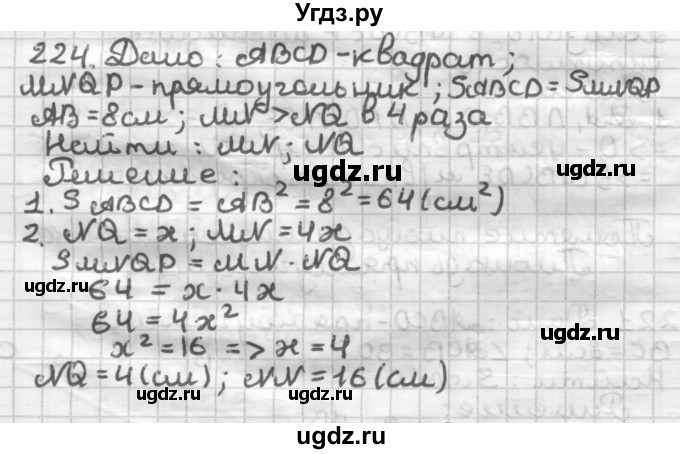 Угдз.ру
224. Дано: ABCD - квадрат;
MNQP - прямоугольник; SABCD = SMNQP
AB = 8 см; MN > NQ в 4 раза
Найти: MN; NQ
Решение:
1. SABCD = AB² = 8² = 64 (см²)
2. NQ = x; MN = 4x
SMNQP = MN · NQ
64 = x · 4x
64 = 4x²
x² = 16 => x = 4
NQ = 4 (см); NN = 16 (см)
ugdz.ru
ugdz.ru
ugdz.ru
ugdz.ru
ugdz.ru
ugdz.ru
ugdz.ru